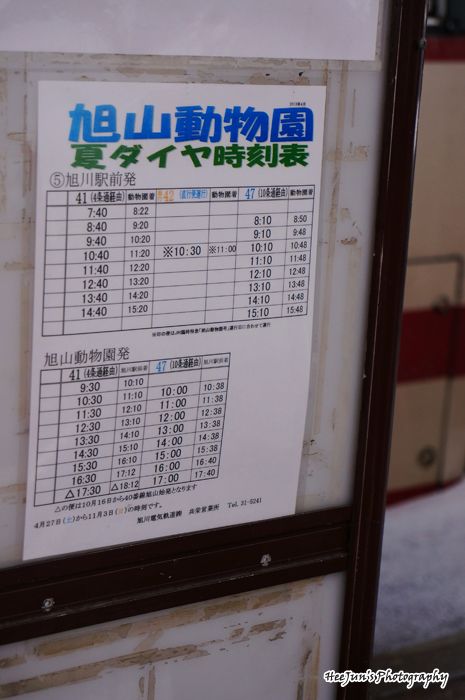 旭山動物園
夏ダイヤ時刻表
⑤旭川駅前発
41 (4条通経由) 動物園着 ※42 (直行便運行) 動物園着 47 (10条通経由) 動物園着
7:40 8:22
8:40 9:20 8:10 8:50
9:40 10:20 9:10 9:48
10:40 11:20 ※10:30 ※11:00 10:10 10:48
11:40 12:20 11:10 11:48
12:40 13:20 12:10 12:48
13:40 14:20 13:10 13:48
14:40 15:20 14:10 14:48
15:10 15:48
※印の便はJR臨時特急「旭山動物園号」運行日に合わせて運行
旭山動物園発
41 (4条通経由) 旭川駅前着 47 (10条通経由) 旭川駅前着
9:30 10:10
10:30 11:10 10:00 10:38
11:30 12:10 11:00 11:38
12:30 13:10 12:00 12:38
13:30 14:10 13:00 13:38
14:30 15:10 14:00 14:38
15:30 16:10 15:00 15:38
16:30 17:12 16:00 16:40
△17:30 △18:12 17:00 17:40
△の便は10月16日から40番線旭山始発となります
4月27日(土)から11月3日(日)の時刻です。
旭川電気軌道㈱ 共栄営業所 Tel. 31-5241
HeeJun's Photography